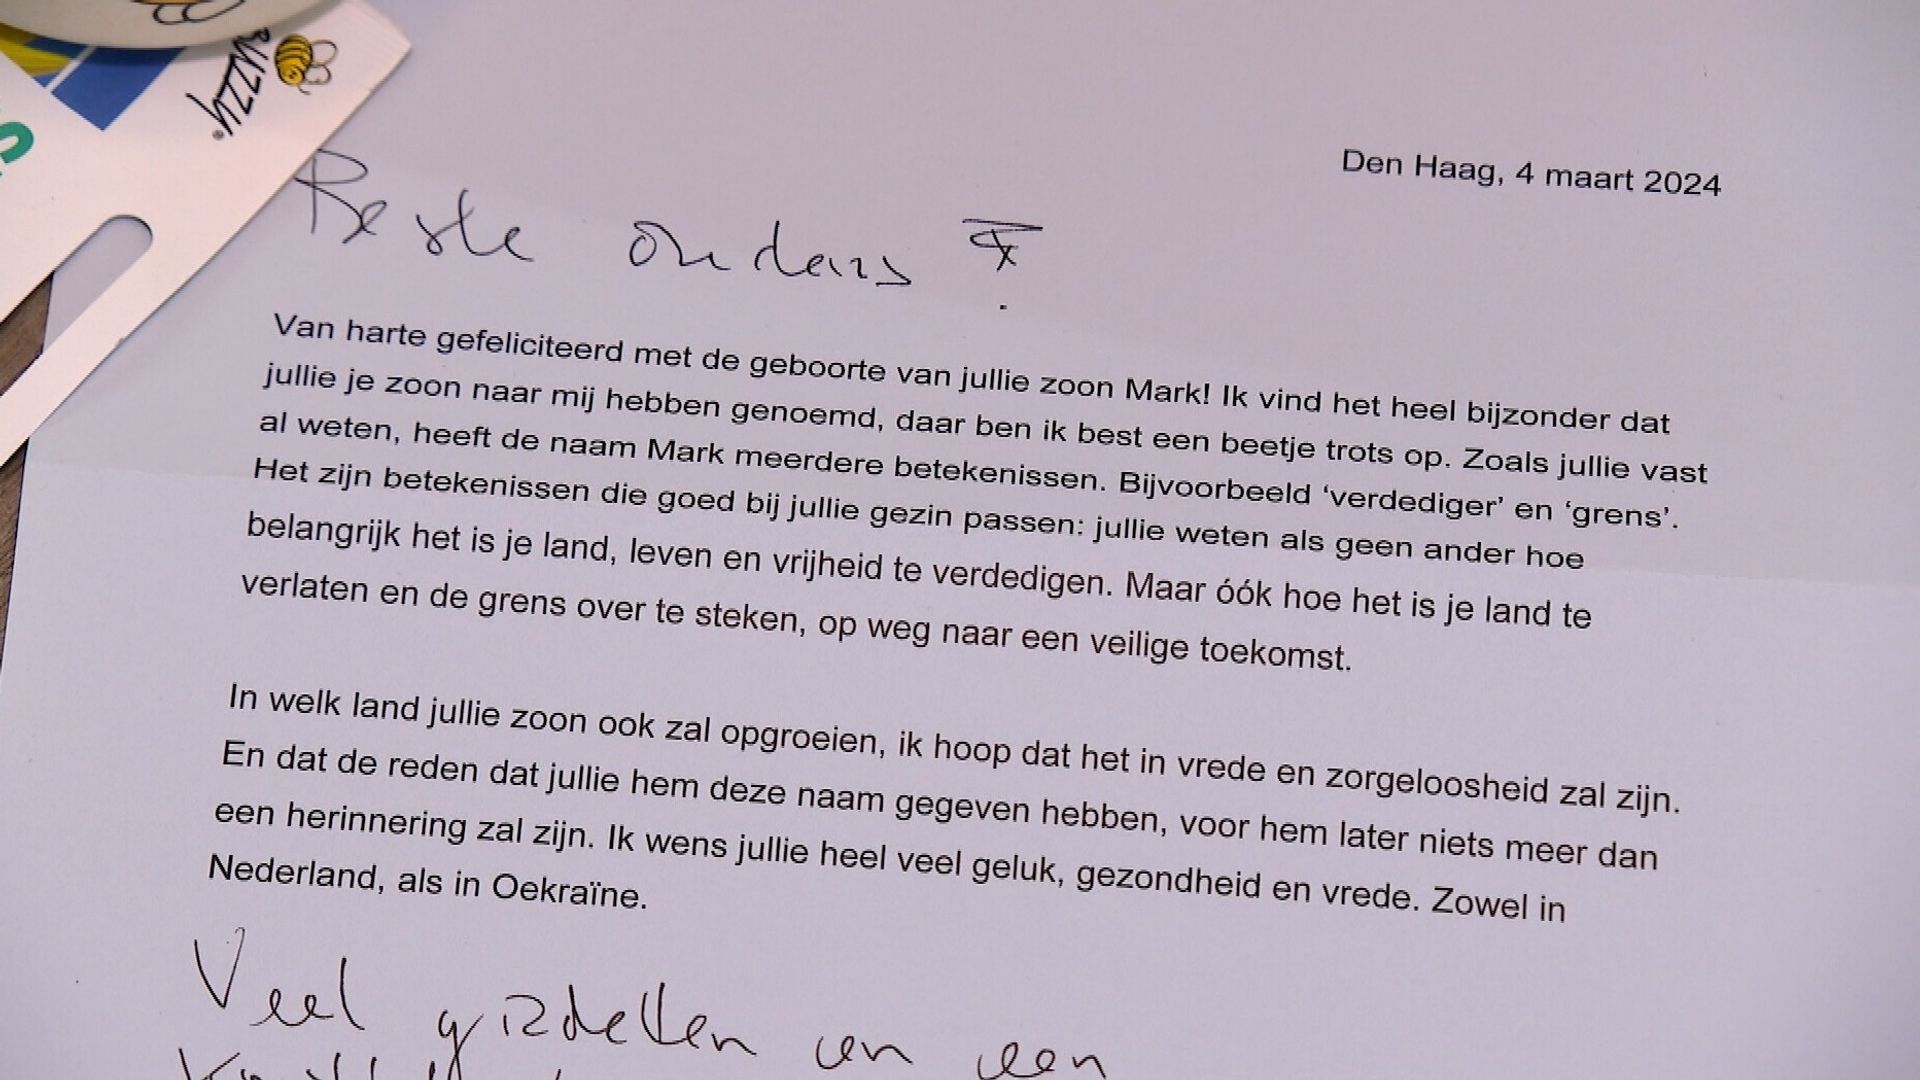 BUZZY®
S
Den Haag, 4 maart 2024
Beste ouders
Van harte gefeliciteerd met de geboorte van jullie zoon Mark! Ik vind het heel bijzonder dat
jullie je zoon naar mij hebben genoemd, daar ben ik best een beetje trots op. Zoals jullie vast
al weten, heeft de naam Mark meerdere betekenissen. Bijvoorbeeld ‘verdediger’ en ‘grens’.
Het zijn betekenissen die goed bij jullie gezin passen: jullie weten als geen ander hoe
belangrijk het is je land, leven en vrijheid te verdedigen. Maar óók hoe het is je land te
verlaten en de grens over te steken, op weg naar een veilige toekomst.
In welk land jullie zoon ook zal opgroeien, ik hoop dat het in vrede en zorgeloosheid zal zijn.
En dat de reden dat jullie hem deze naam gegeven hebben, voor hem later niets meer dan
een herinnering zal zijn. Ik wens jullie heel veel geluk, gezondheid en vrede. Zowel in
Nederland, als in Oekraïne.
Veel en een